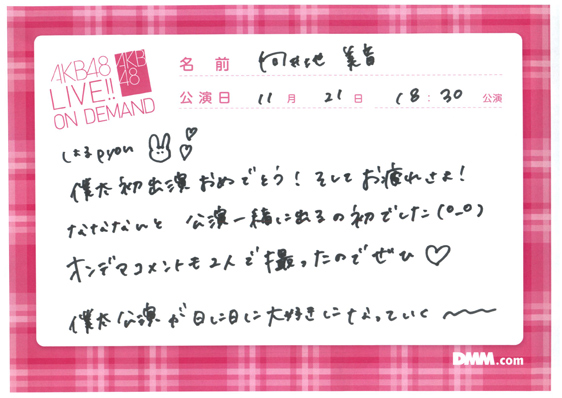 AKB48
LIVE!!
ON DEMAND
AKB
48
名前 向井地 美音
公演日 11月 21日 18:30 公演
しょうpyon
僕太初出演おめでとう！そしてお疲れさま！
なななないと 公演一緒に出るの初でした(o_o)
オンデマコメントも2人で撮ったのでぜひ♡
僕太公演が日に日に大好きになっていく〜〜
DMM.com